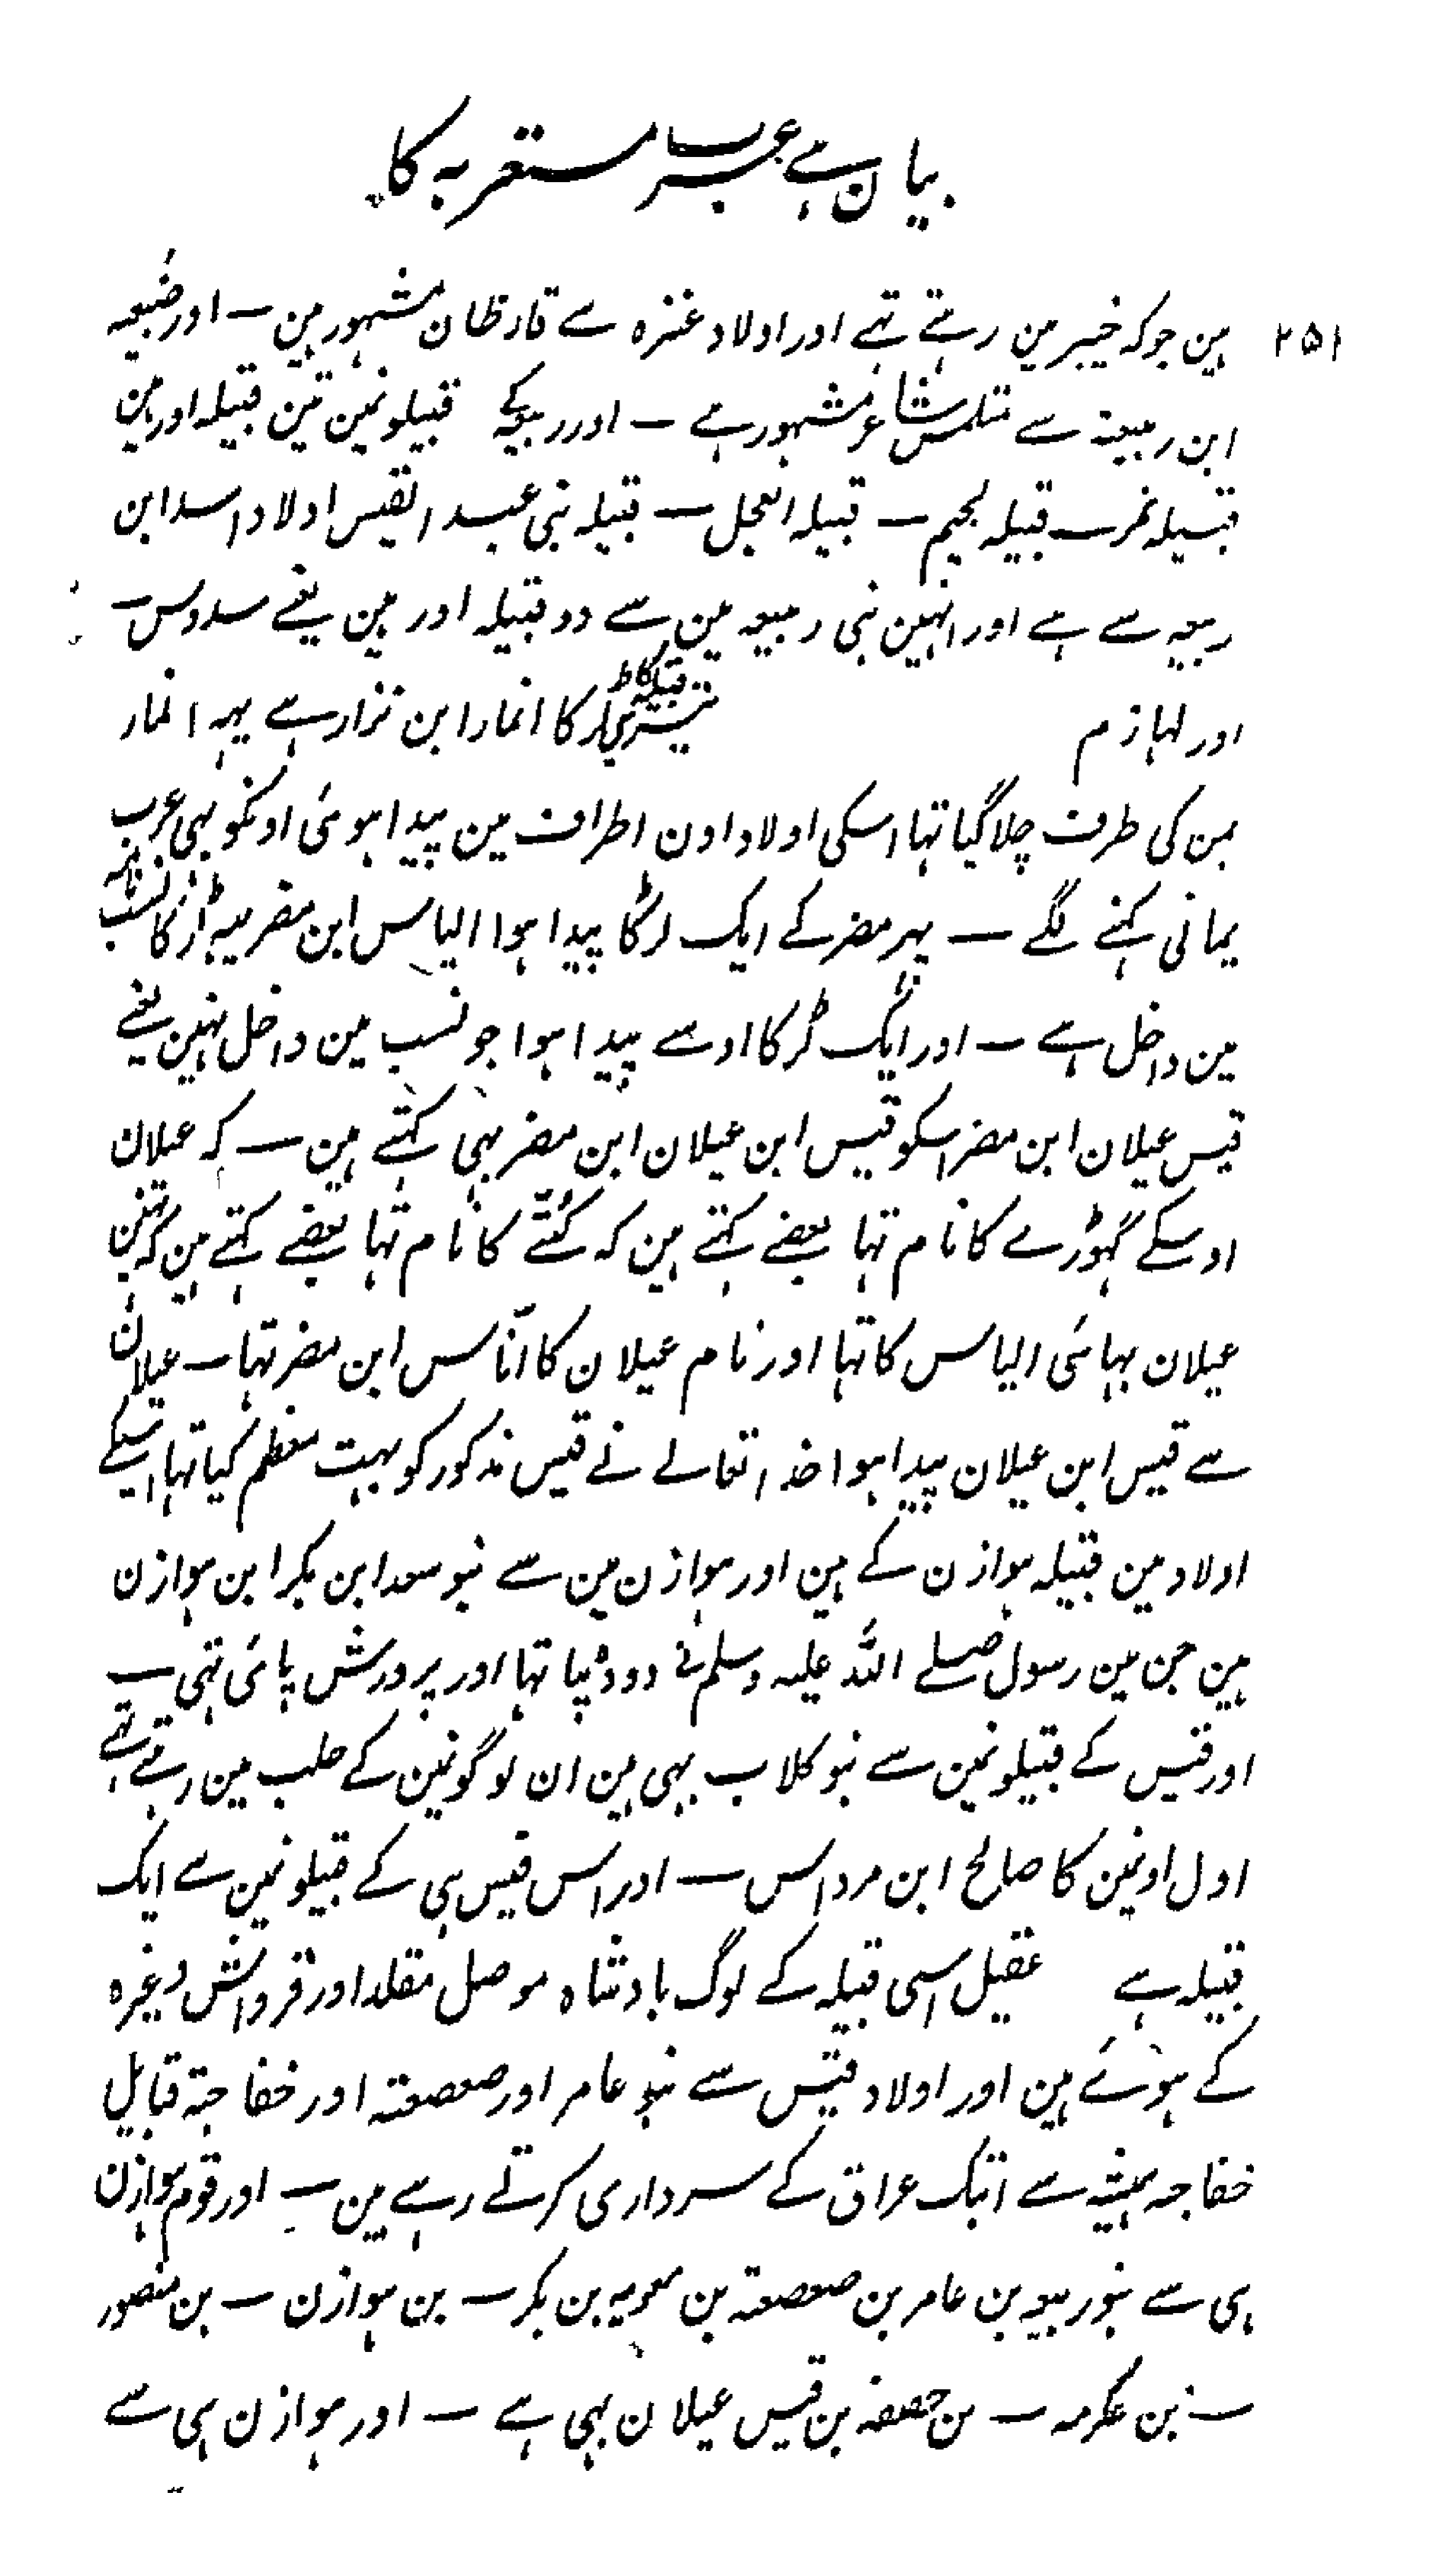 بیان ہے عرب مستعربہ کا
۲۵۱
ہین جو کہ خیبر مین رہتے تہے اور اولاد عنزہ سے قارظان مشہور ہین ــ اور ضُبیعہ
ابن ربیعۃ سے متلمس شاعر مشہور ہے ــ اور ربیعہ کے قبیلونمین تین قبیلہ اور ہین
قبیلہ نمر ــ قبیلہ لجیم ــ قبیلہ العجل ــ قبیلہ بنی عبد القیس اولاد اسد ابن
ربیعہ سے ہے اور انہین بنی ربیعہ مین سے دو قبیلہ اور ہین یعنے سدوس ــ
اور لہازم کا انمار ابن نزار ہے یہہ انمار
یمن کی طرف چلا گیا تہا اسکی اولاد اون اطراف مین پیدا ہوئی اونکو بہی عرب
یمانی کہنے لگے ــ پہر مضر کے ایک لڑکا پیدا ہوا الیاس ابن مضر یہہ لڑکا نسب نامہ
مین داخل ہے ــ اور ایک لڑکا اوسے پیدا ہوا جو نسب مین داخل نہین یعنے
قیس عیلان ابن مضر اسکو قیس ابن عیلان ابن مضر بہی کہتے ہین ــ کہ عیلان
اوسکے گہوڑے کا نام تہا بعضے کہتے ہین کہ کُتّے کا نام تہا بعضے کہتے ہین کہ نہین
عیلان بہائی الیاس کا تہا اور نام عیلان کا اُناس ابن مضر تہا ــ عیلان
سے قیس ابن عیلان پیدا ہوا خدا تعالے نے قیس مذکور کو بہت معظم کیا تہا اسیکے
اولاد مین قبیلہ ہوازن کے ہین اور ہوازن مین سے بنو سعد ابن بکر ابن ہوازن
ہین جن مین رسول صلے اللہ علیہ وسلم نے دودہ پیا تہا اور پرورش پائی تہی ــ
اور قیس کے قبیلونمین سے بنو کلاب بہی ہین ان لوگونمین کے حلب مین رہتے تہے
اول اونمین کا صالح ابن مرداس ــ اور اس قیس ہی کے قبیلونمین سے ایک
قبیلہ ہے عقیل اسی قبیلہ کے لوگ بادشاہ موصل مقلد اور قرواش وغیرہ
کے ہوئے ہین اور اولاد قیس سے بنو عامر اور صعصعۃ اور خفاجۃ قبایل
خفاجہ ہمیشہ سے ابتک عراق کے سرداری کرتے رہے ہین ــ اور قوم ہوازن
ہی سے بنو ربیعہ بن عامر بن صعصعۃ بن معویہ بن بکر ــ بن ہوازن ــ بن منصور
ــ بن عکرمہ ــ بن حصفہ بن قیس عیلان بہی ہے ــ اور ہوازن ہی سے